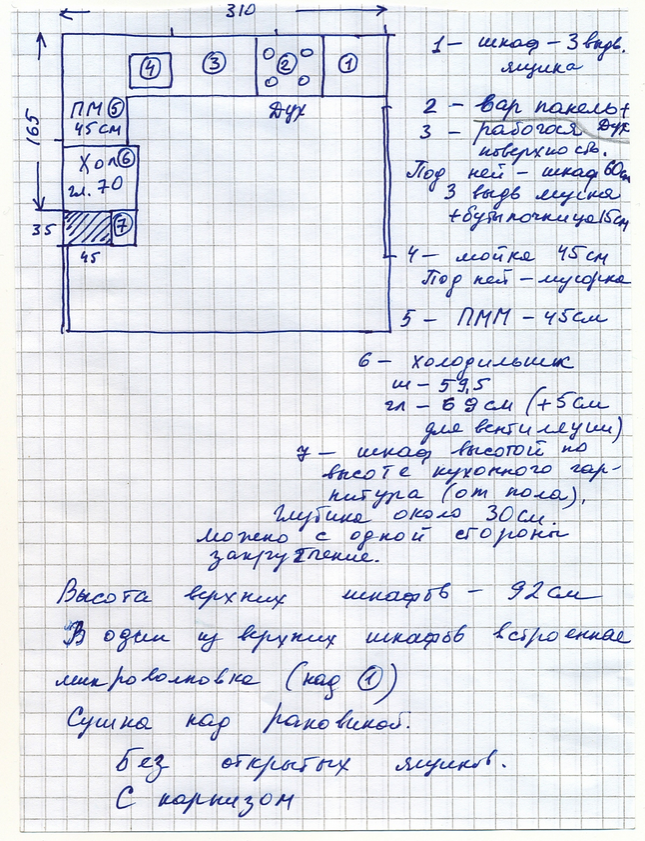 310
④ ③ ② ①
Дух
165
ПМ ⑤
45см
Хол ⑥
гл. 70
⑦
35
45
1 – шкаф – 3 выдв.
ящика
2 – вар панель +
Дух
3 – рабочая
поверхность.
Под ней – шкаф 60см
3 выдв ящика
+ бутылочница 15см
4 – мойка 45 см
Под ней – мусорка
5 – ПММ – 45см
6 – холодильник
ш – 59,5
гл – 69 см (+5см
для вентиляции)
7 – шкаф высотой по
высоте кухонного гар-
нитура (от пола),
Глубина около 30см.
можно с одной стороны
закругление.
Высота верхних шкафов – 92см
В один из верхних шкафов встроенная
микроволновка (над ①)
Сушка над раковиной.
Без открытых ящиков.
С карнизом